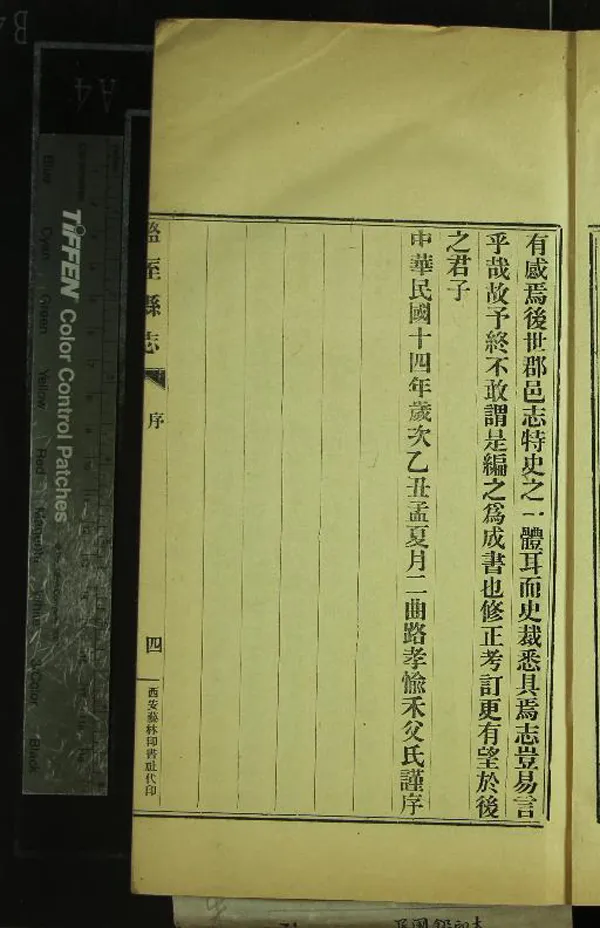 有感焉後世郡邑志特史之一體耳而史裁悉具焉志豈易言
乎哉故予終不敢謂是編之爲成書也修正考訂更有望於後
之君子
中華民國十四年歲次乙丑孟夏月二曲路孝愉禾父氏謹序
盩厔縣志
序
四
西安藝林印書社代印
TIFFEN Color Control Patches
Blue
Cyan
Green
Yellow
Red
Magenta
White
3/Color
Black
A4
B4